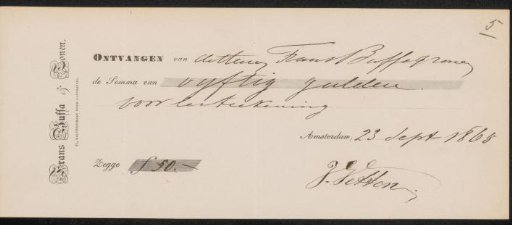 5
Frans Buffa & Zonen.
ONTVANGEN van de Heeren Frans Buffa & Zonen
de Somma van vyftig gulden
voor
Amsterdam, 23 Sept 1865
Zegge f 50.-